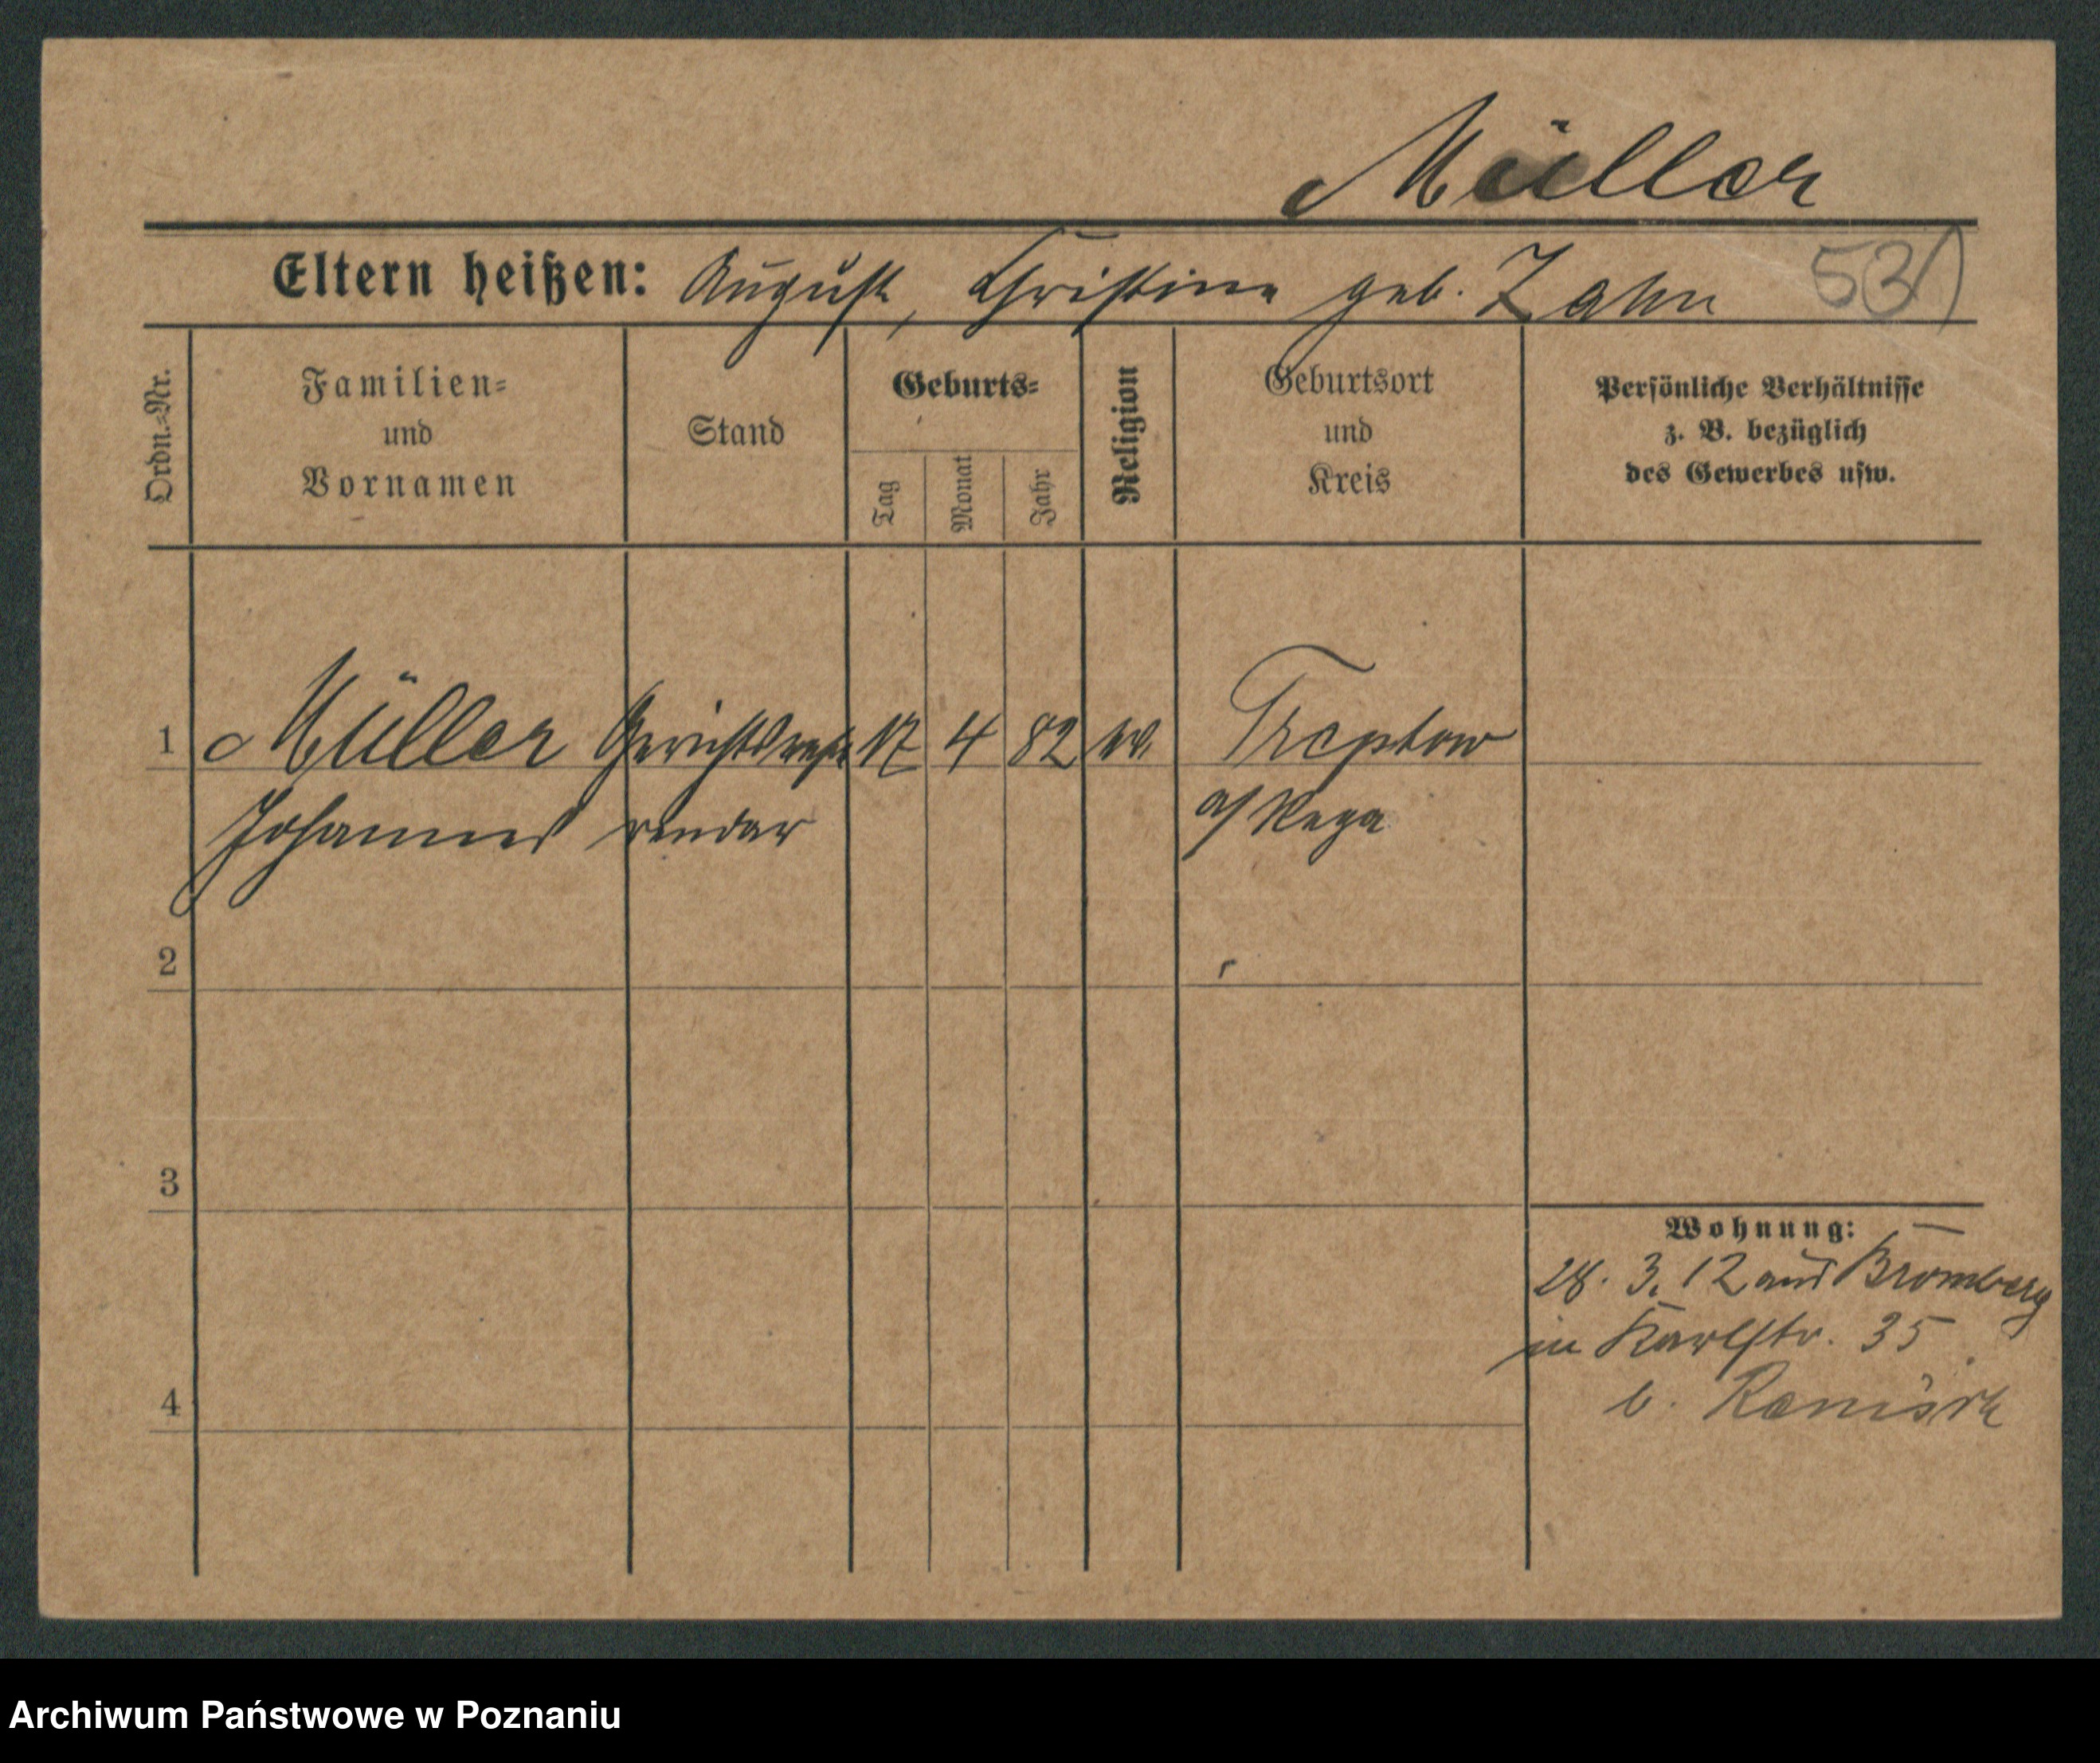 Müller
Eltern heißen: August, Christine geb. Zahn 531
Ordn.-Nr.
Familien-
und
Vornamen
Stand
Geburts-
Tag
Monat
Jahr
Religion
Geburtsort
und
Kreis
Persönliche Verhältnisse
z. B. bezüglich
des Gewerbes usw.
1 Müller Gerichtsrefe 17 4 82 ev. Treptow
Johannes rendar a/Rega
2
3
Wohnung:
28. 3. 12 aus Bromberg
in Karlstr. 35
b.
4
Archiwum Państwowe w Poznaniu